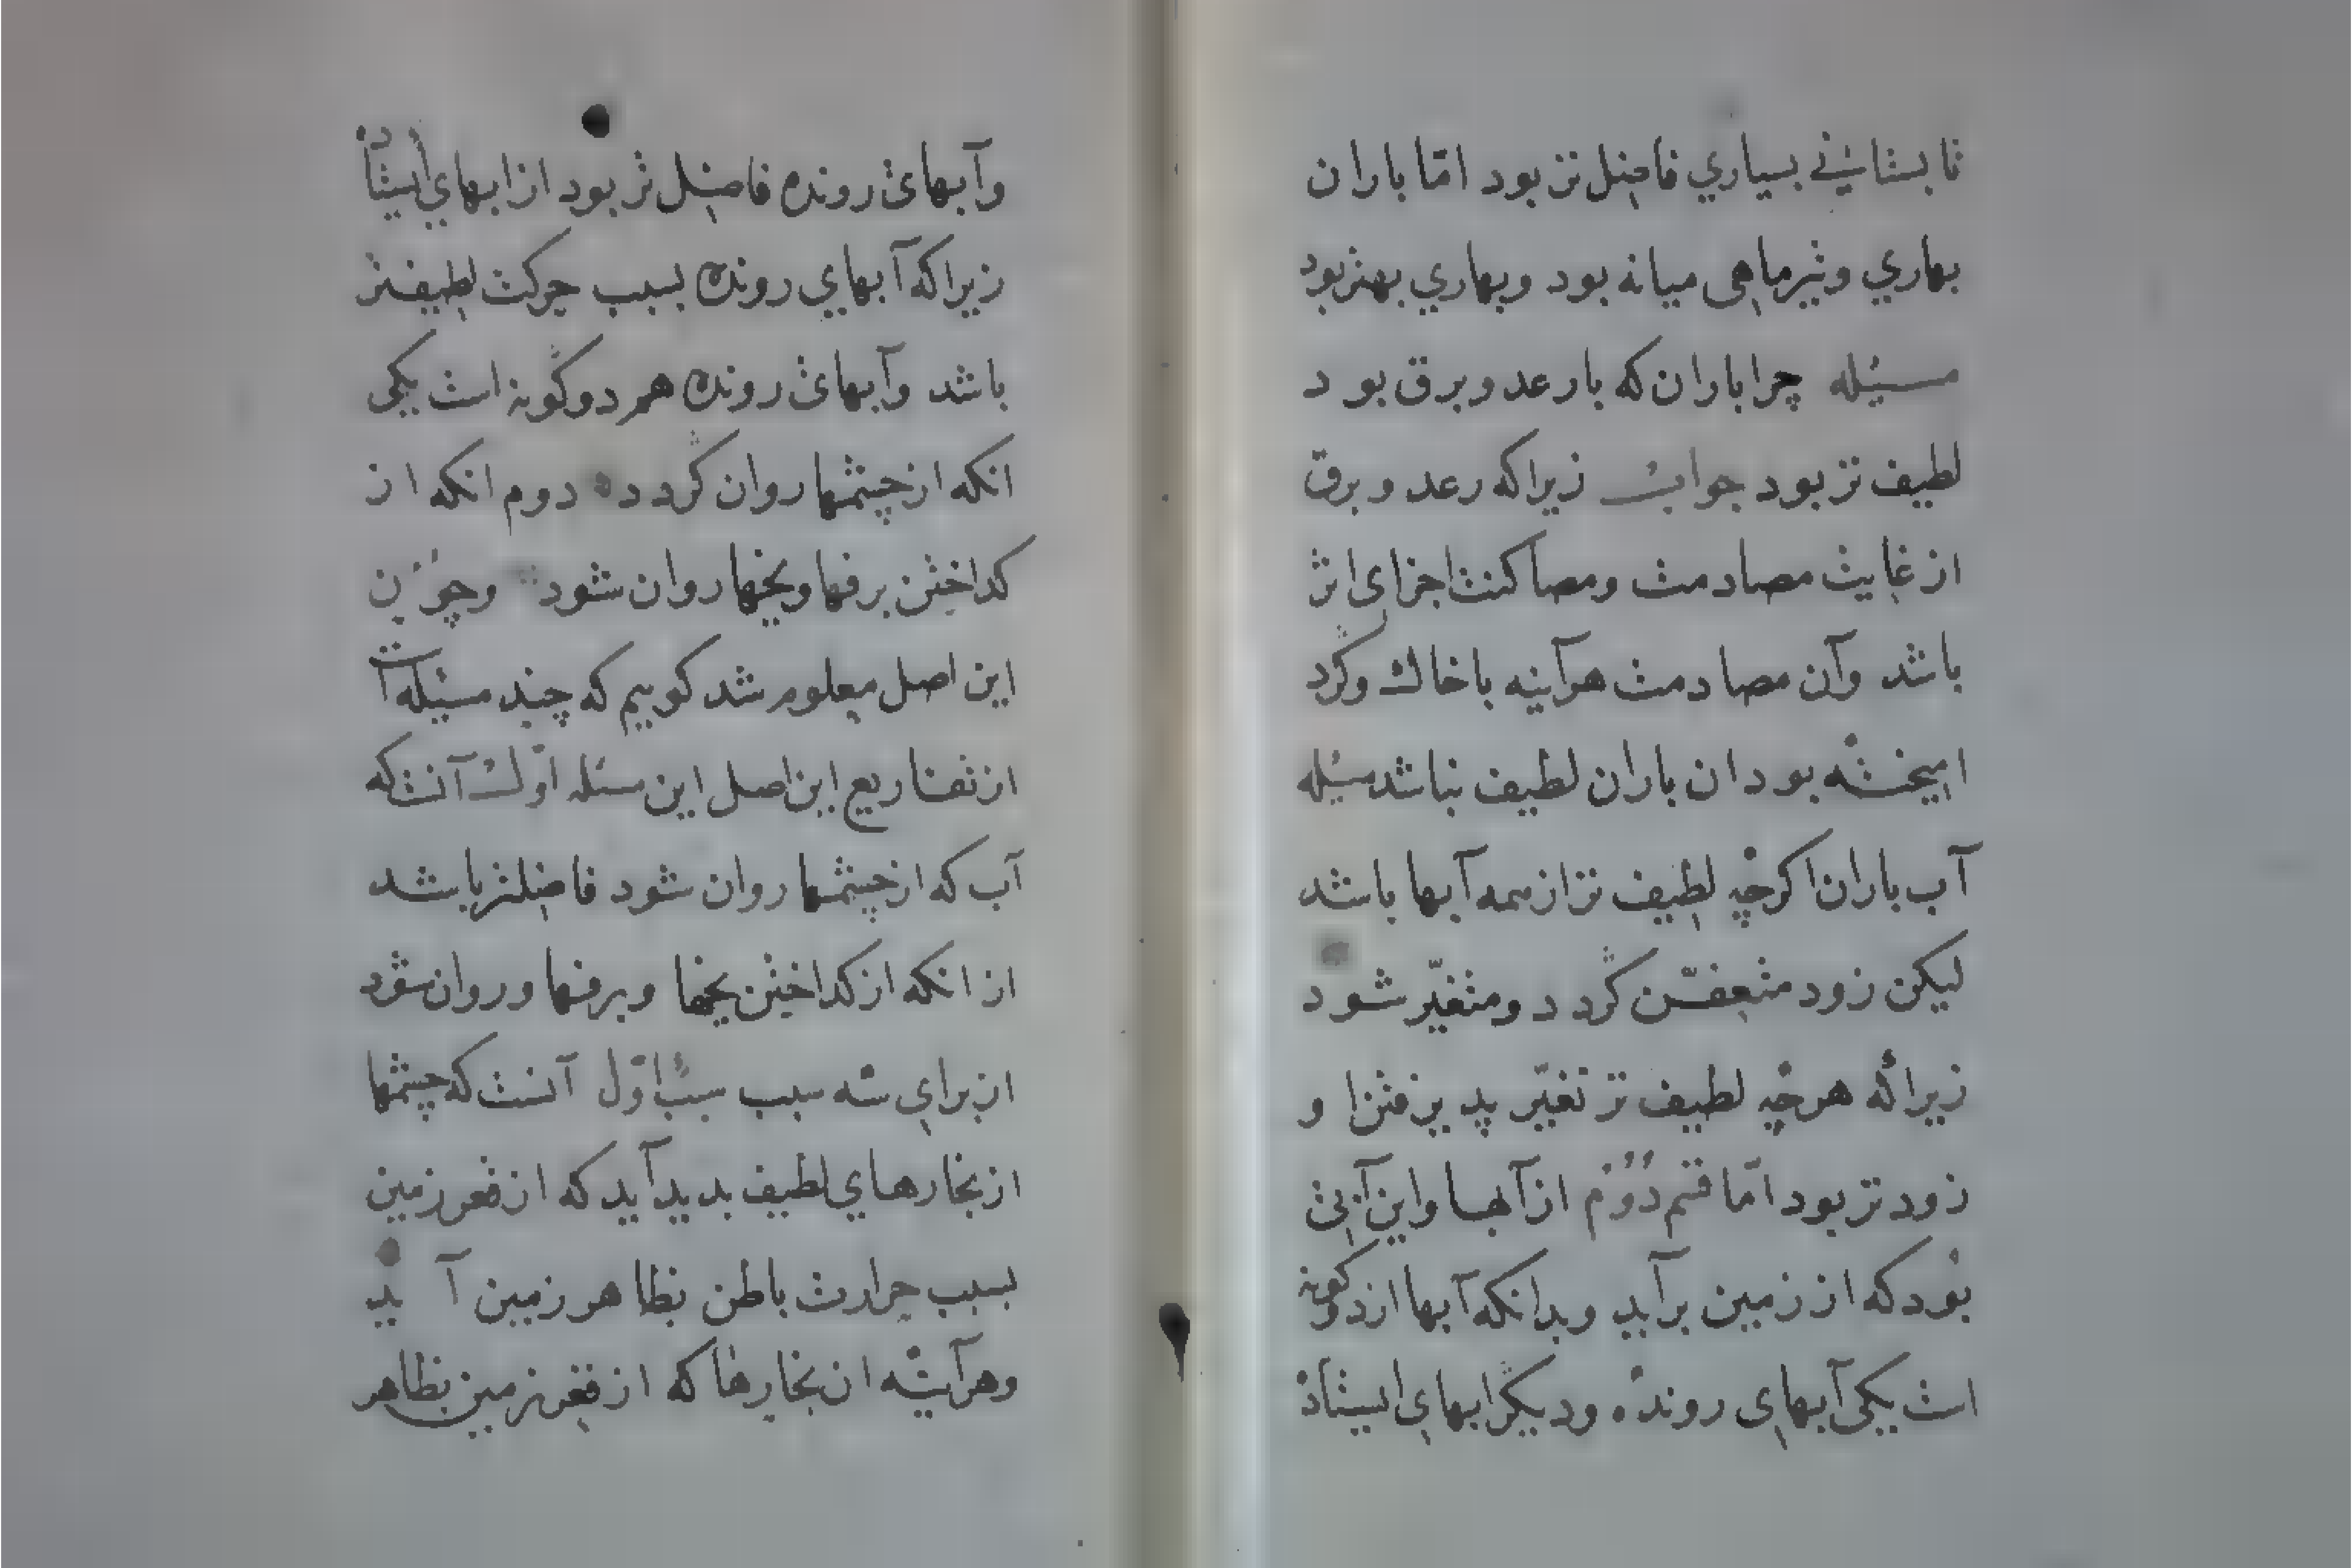 تابستانی بسیاری فاضل تر بود امّا باران
بهاری و تیرماهی میانه بود و بهاری بهتر بود
مسئله چرا باران که بارعد و برق بود
لطیف تر بود جواب زیرا که رعد و برق
از غایت مصادمت و مصاکت اجزای اثر
باشد وآن مصادمت هرآینه باخاک و گرد
امیخته بود ان باران لطیف نباشد مسئله
آب باران اکرچه لطیف تر از همه آبها باشد
لیکن زود متعفّن گردد و متغیّر شود
زیراکه هرچه لطیف تر تغیّر پدیرفتن او
زود تر بود امّا قسم دُوُم ازآبها واین آبی
بود که از زمین برآید وبدانکه آبها از دو کونه
است یکی آبهای رونده ودیگر ابهای ایستاده
وآبهای رونده فاضل تر بود از ابهای ایستاده
زیراکه آبهای رونده بسبب حرکت لطیفتر
باشد وآبهای رونده هم دو گونه است یکی
انکه از چشمها روان گردد دوم انکه از
کداختن برفها ویخها روان شود وچون
این اصل معلوم شد کوییم که چند مسئله است
از تفاریع این اصل این مسئله اوّل آنست که
آب که از چشمها روان شود فاضلتر باشد
از انکه از کداختن یخها وبرفها و روان شود
از برای سه سبب سبب اوّل آنست که چشمها
از بخارهای لطیف بدید آید که از قعر زمین
بسبب حرارت باطن بظاهر زمین آید
وهرآینه ان بخارها که از قعر زمین بظاهر